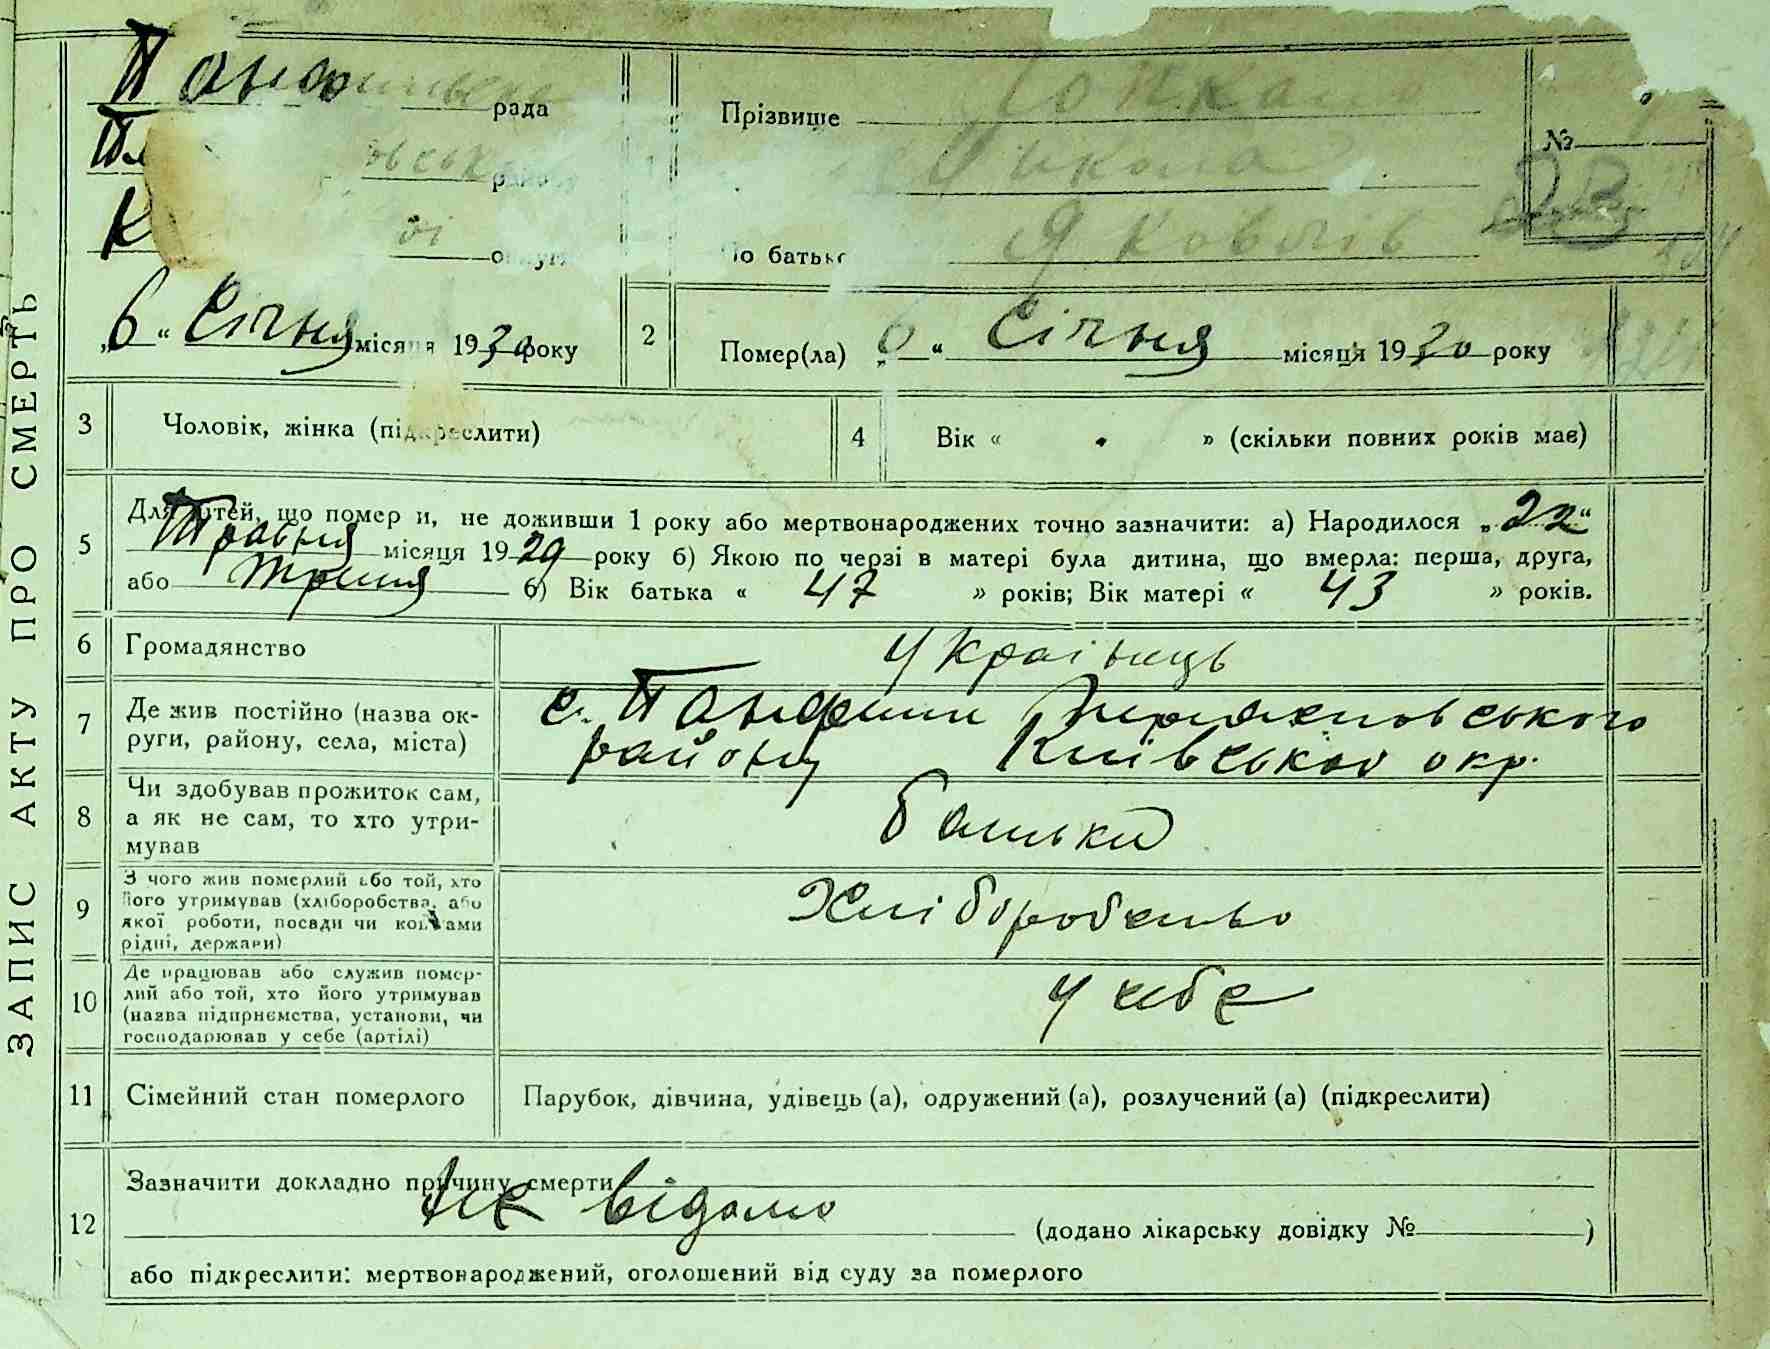 рада
Прізвище
№
Микола
23
По батьк
Яковлів
ЗАПИС АКТУ ПРО СМЕРТЬ
„6“ Січня місяця 1930 року
2 Помер(ла) „6“ Січня місяця 1930 року
3 Чоловік, жінка (підкреслити)
4 Вік « » (скільки повних років має)
5 Для дітей, що помер и, не доживши 1 року або мертвонароджених точно зазначити: а) Народилося „22“
Травня місяця 1929 року б) Якою по черзі в матері була дитина, що вмерла: перша, друга,
або третя б) Вік батька « 47 » років; Вік матері « 43 » років.
6 Громадянство Українець
7 Де жив постійно (назва ок-
руги, району, села, міста)
с. Панфили
району Київської окр.
8 Чи здобував прожиток сам,
а як не сам, то хто утри-
мував
батьки
9 З чого жив померлий або той, хто
його утримував (хліборобства, або
якої роботи, посади чи коштами
рідні, держави)
Хліборобство
10 Де працював або служив помер-
лий або той, хто його утримував
(назва підприємства, установи, чи
господарював у себе (артілі)
у себе
11 Сімейний стан померлого Парубок, дівчина, удівець (а), одружений (а), розлучений (а) (підкреслити)
12 Зазначити докладно причину смерти
не відомо (додано лікарську довідку № )
або підкреслити: мертвонароджений, оголошений від суду за померлого